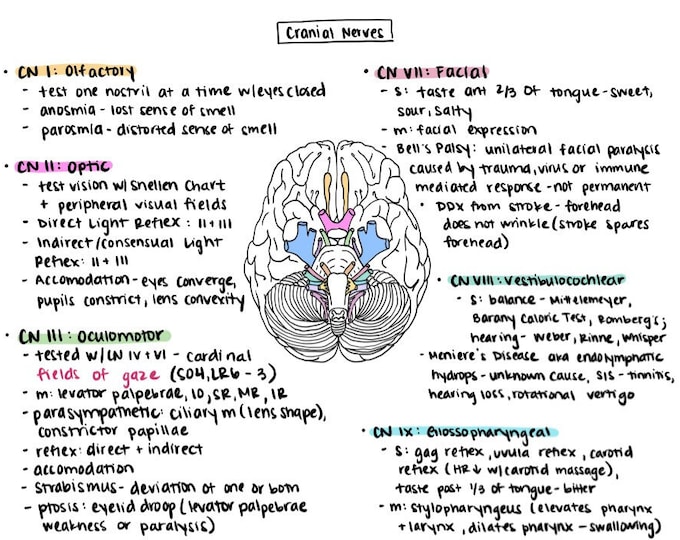 Cranial Nerves
• CN I: Olfactory
- test one nostril at a time w/eyes closed
- anosmia - lost sense of smell
- parosmia - distorted sense of smell
• CN II: Optic
- test vision w/ Snellen Chart
+ peripheral visual fields
- Direct Light Reflex : II + III
- Indirect/consensual Light
Reflex: II + III
- Accomodation - eyes converge,
pupils constrict, lens convexity
• CN III: Oculomotor
- tested w/CN IV + VI - cardinal
fields of gaze (SO4, LR6 - 3)
- m: levator palpebrae, IO, SR, MR, IR
- parasympathetic: ciliary m (lens shape),
constrictor papillae
- reflex: direct + indirect
- accomodation
- strabismus - deviation of one or both
- ptosis: eyelid droop (levator palpebrae
weakness or paralysis)
• CN VII: Facial
- S: taste ant 2/3 of tongue - sweet,
sour, salty
- m: facial expression
- Bell's Palsy: unilateral facial paralysis
caused by trauma, virus or immune
mediated response - not permanent
• DDX from stroke - forehead
does not wrinkle (stroke spares
forehead)
• CN VIII: Vestibulocochlear
- S: balance - Mittelemeyer,
Barany Caloric Test, Romberg's;
hearing - Weber, Rinne, Whisper
- Meniere's Disease aka endolymphatic
hydrops - unknown cause, SIS - tinnitis,
hearing loss, rotational vertigo
• CN IX: Glossopharyngeal
- S: gag reflex, uvula reflex, carotid
reflex (HR ↓ w/carotid massage),
taste post 1/3 of tongue - bitter
- m: Stylopharyngeus (elevates pharynx
+ larynx, dilates pharynx - swallowing)